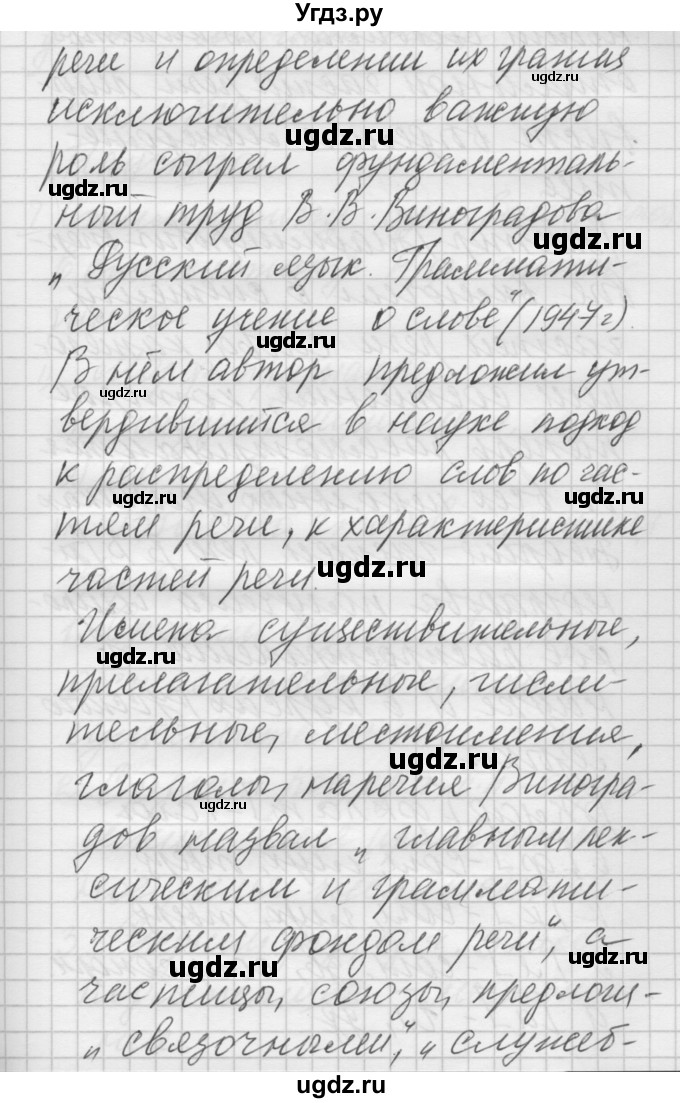 Угдз.ру
речи и определении их границ
ugdz.ru
исключительно важную
ugdz.ru
роль сыграл фундаменталь-
ugdz.ru
ный труд В.В.Виноградова
ugdz.ru
„Русский язык. Граммати-
ческое учение о слове" (1947г).
ugdz.ru
В нём автор предложил ут-
ugdz.ru
вердившийся в науке подход
к распределению слов по час-
ugdz.ru ugdz.ru
тям речи, к характеристике
частей речи.
ugdz.ru
Имена существительные,
ugdz.ru
прилагательные, числи-
тельные, местоимения,
ugdz.ru
глаголы, наречия Виногра-
ugdz.ru
дов назвал „главным лек-
сическим и граммати-
ческим фондом речи", а
ugdz.ru ugdz.ru
частицы, союзы, предлоги -
„связочными", „служеб-
ugdz.ru